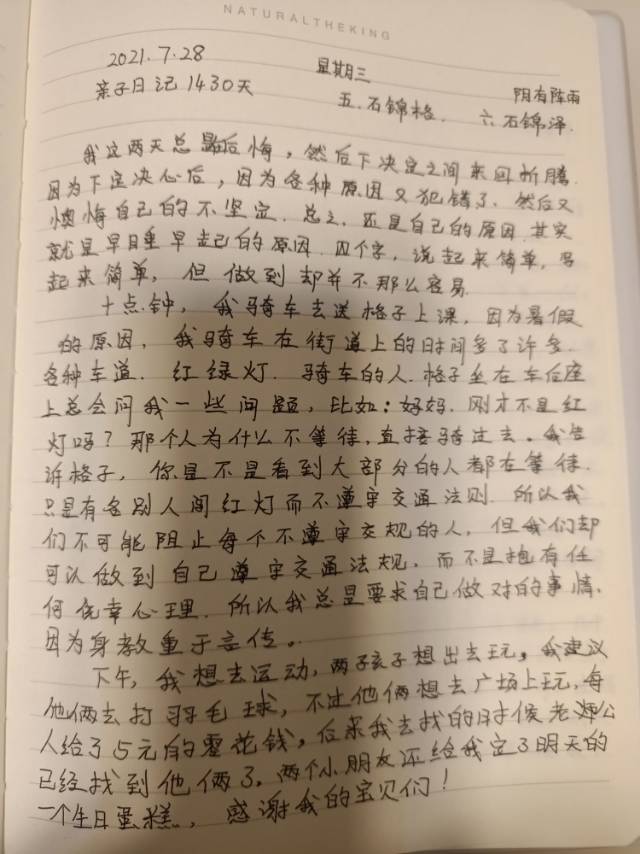 NATURALTHEKING
2021.7.28 星期三 阴有阵雨
亲子日记1430天 五.石锦格. 六石锦泽.
我这两天总是后悔，然后下决定之间来回折腾.
因为下定决心后，因为各种原因又犯错了.然后又
懊悔自己的不坚定.总之.还是自己的原因.其实
就是早睡早起的原因.四个字，说起来简单，写
起来简单，但做到却并不那么容易.
十点钟，我骑车去送格子上课，因为暑假
的原因，我骑车在街道上的时间多了许多.
各种车道.红绿灯.骑车的人.格子坐在车后座
上总会问我一些问题，比如：妈妈.刚才不是红
灯吗？那个人为什么不等待，直接骑过去。我告
诉格子，你是不是看到大部分的人都在等待.
只是有各别人闯红灯而不遵守交通法则.所以我
们不可能阻止每个不遵守交规的人，但我们却
可以做到自己遵守交通法规，而不是抱有任
何侥幸心理.所以我总是要求自己做对的事情.
因为身教重于言传。
下午，我想去运动，两子孩子想出去玩，我建议
他俩去打羽毛球，不过他俩想去广场上玩，每
人给了5元的零花钱，后来我去找的时候老婶公
已经找到他俩了，两个小朋友还给我定了明天的
一个生日蛋糕，感谢我的宝贝们！